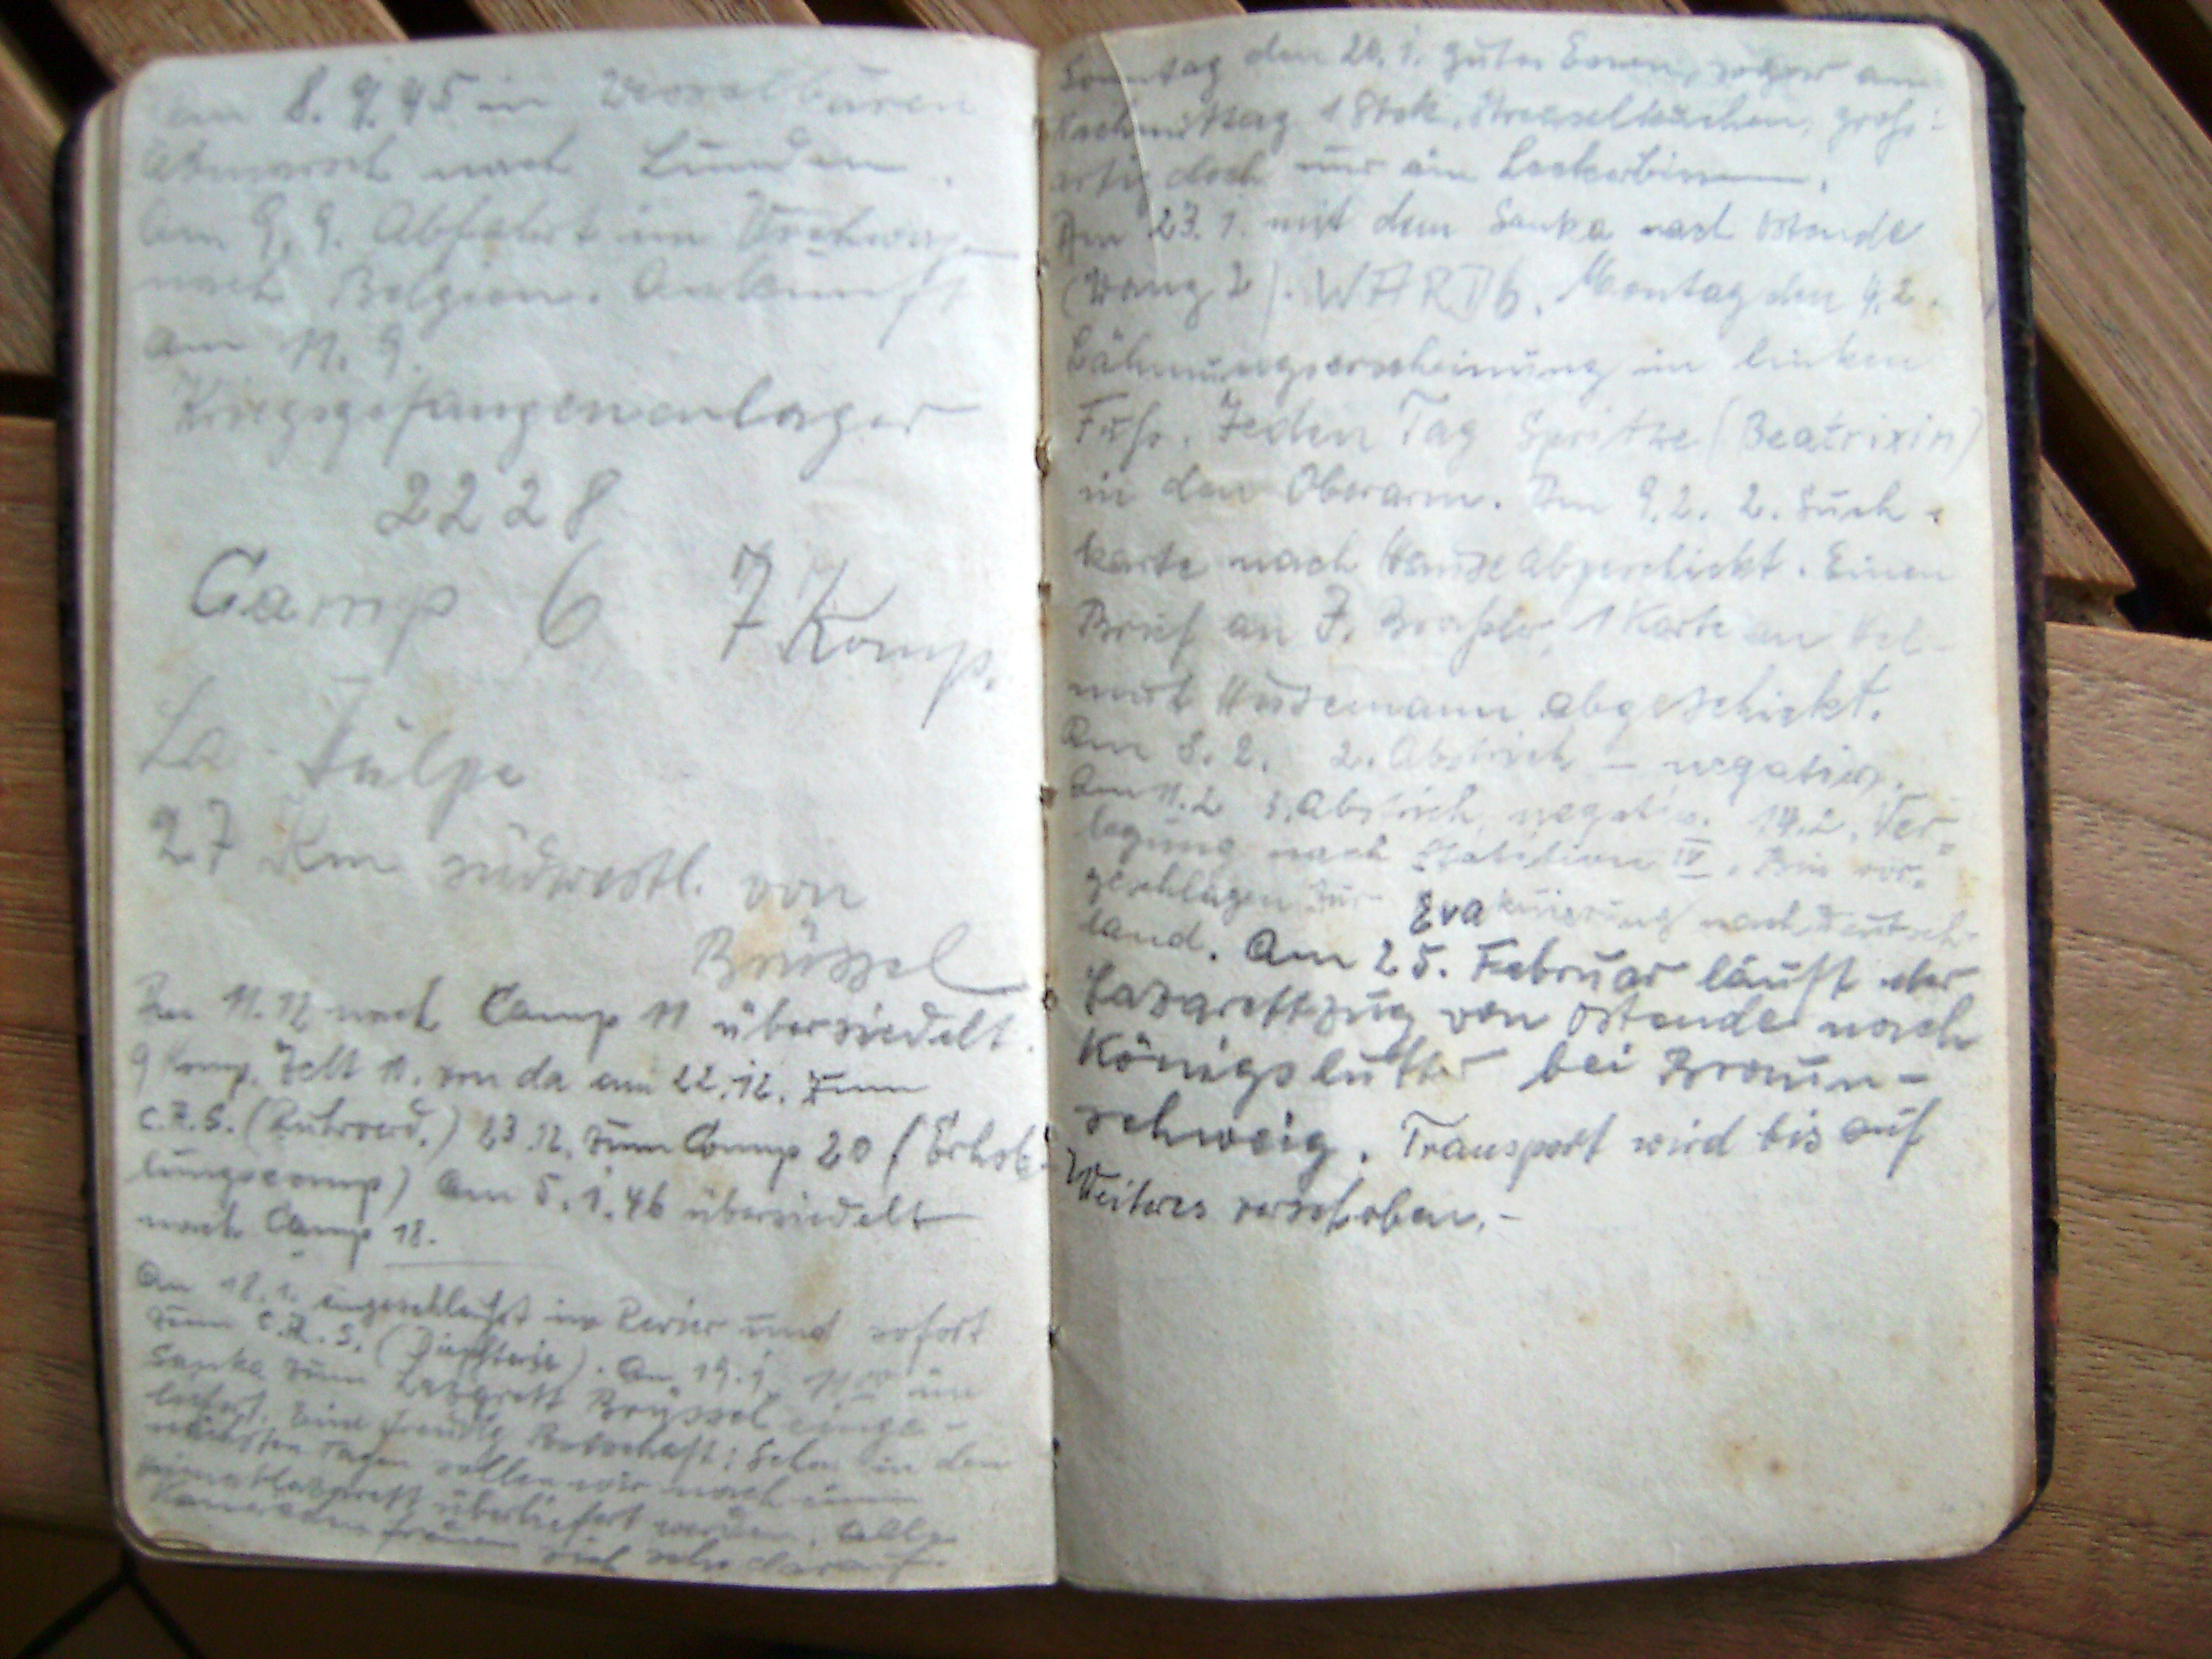 Am 8. 9. 45 in Wesselburen
Abmarsch nach Lunden.
Am 9. 9. Abfahrt im Viehwagen
nach Belgien. Ankunft
am 11. 9.
Kriegsgefangenenlager
2228
Camp 6 7 Komp.
La Tülpe
27 Km südwestl. von
Brüssel
Am 11.12 nach Camp 11 übersiedelt.
9 Komp. Zelt 11. von da am 22.12. zum
C.R.S. (Ruhrverd.) 23.12. zum Camp 20 (Erho-
lungscamp) Am 5.1.46 übersiedelt
nach Camp 18.
Am 18.1. im Revier und sofort
zum C.R.S. (Diphterie). Am 19.1. 11.00 im
Sanka zum Lazarett Brüssel einge-
liefert. Eine Botschaft: Schon in den
nächsten Tagen sollen wir nach einem
Heimatlazarett überliefert werden. Alle
Kameraden freuen sich sehr darauf.
Sonntag den 20.1. gutes Essen, sogar am
Nachmittag 1 Stck. Streuselkuchen, groß-
artig doch nur ein Leckerbissen.
Am 23.1. mit dem Sanka nach Ostende
2). WARD 6. Montag den 4.2.
Lähmungserscheinung im linken
Fuß. Jeden Tag Spritze (Beatrixin)
in den Oberarm. Am 9.2. 2. Such-
karte nach Hause abgeschickt. Einen
Brief an 1 Karte an Hel-
mut Hudemann abgeschickt.
Am 8.2. 2. Abstrich – negativ.
Am 11.2 3. Abstrich, negativ. 14.2. Ver-
legung nach IV. Bin vor-
geschlagen zur Evakuierung nach Deutsch-
land. Am 25. Februar läuft der
Lazarettzug von Ostende nach
Königslutter bei Braun-
schweig. Transport wird bis auf
Weiteres verschoben.-